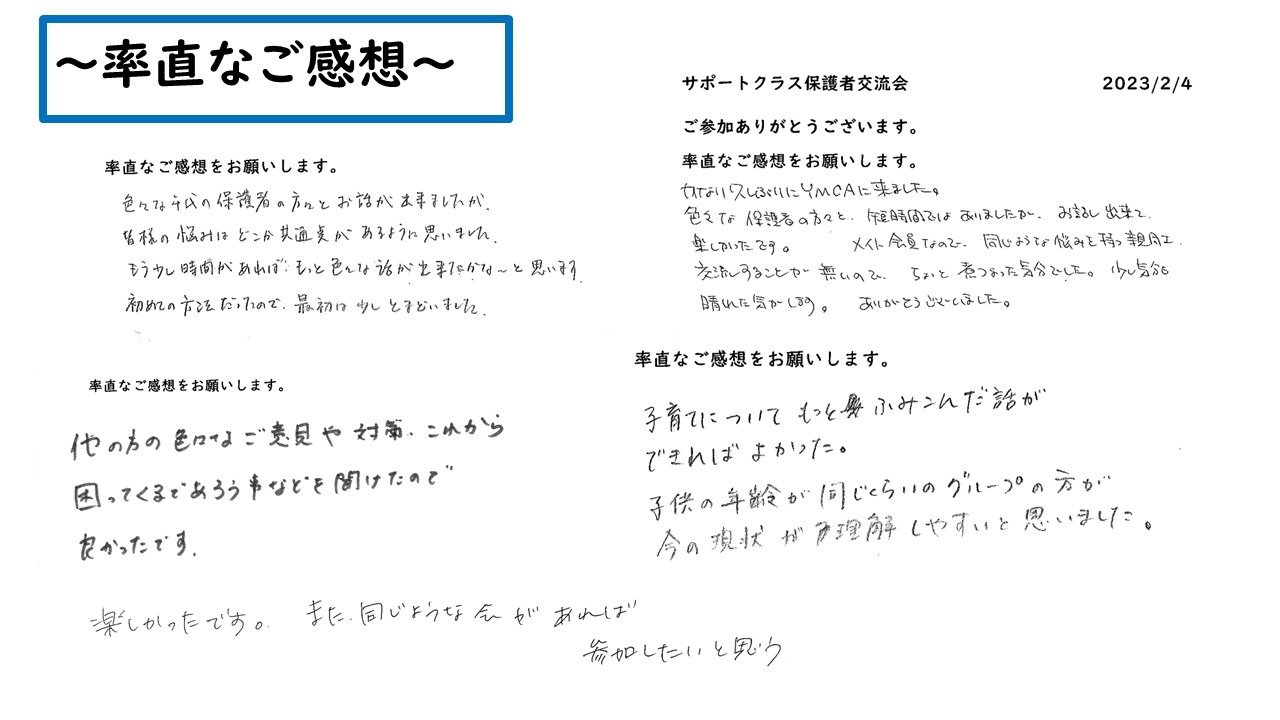 ～率直なご感想～
率直なご感想をお願いします。
色々な年代の保護者の方々とお話が出来ましたが、
皆様の悩みはどこか共通点があるように思いました。
もう少し時間があれば、もっと色々な話が出来たかな～と思います
初めての方法だったので、最初は少しとまどいました。
サポートクラス保護者交流会 2023/2/4
ご参加ありがとうございます。
率直なご感想をお願いします。
かなり久しぶりにYMCAに来ました。
色々な保護者の方々と、短時間ではありましたが、お話し出来て、
楽しかったです。 メイト会員なので、同じような悩みを持つ親同士
交流しすることが無いので、ちょっと煮つまった気分でした。少し気分も
晴れた気がします。 ありがとうございました。
率直なご感想をお願いします。
他の方の色々なご意見や対策、これから
困ってくるであろう事などを聞けたので
良かったです。
率直なご感想をお願いします。
子育てについてもっとふみこんだ話が
できればよかった。
子供の年齢が同じくらいのグループの方が
今の現状が理解しやすいと思いました。
楽しかったです。 また、同じような会があれば
参加したいと思う